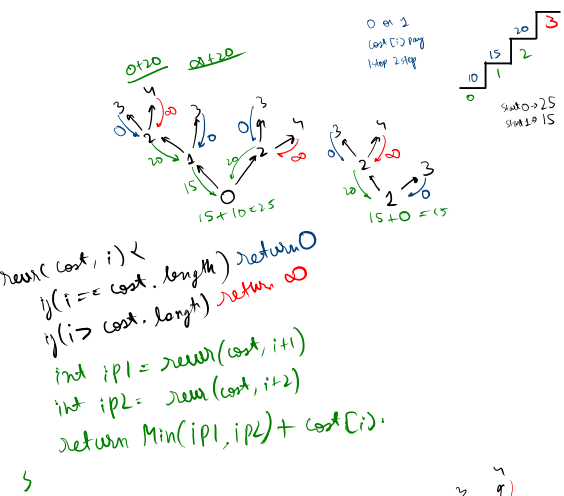 0 or 1
cost[i] pay
1 step 2 step
10
15
20
3
0
1
2
start 0 → 25
start 1 → 15
0+20
0+20
3
4
3
3
4
0
∞
0
0
∞
2
1
2
20
15
20
0
15+10=25
3
4
0
∞
2
3
20
0
1
15+0=15
recur(cost, i) {
if(i == cost.length) return 0
if(i > cost.length) return ∞
int ip1 = recur(cost, i+1)
int ip2 = recur(cost, i+2)
return Min(ip1, ip2) + cost[i].
}
4
3